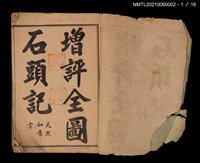 NMTL20210060002 - 1 / 16
增評全圖
石頭記